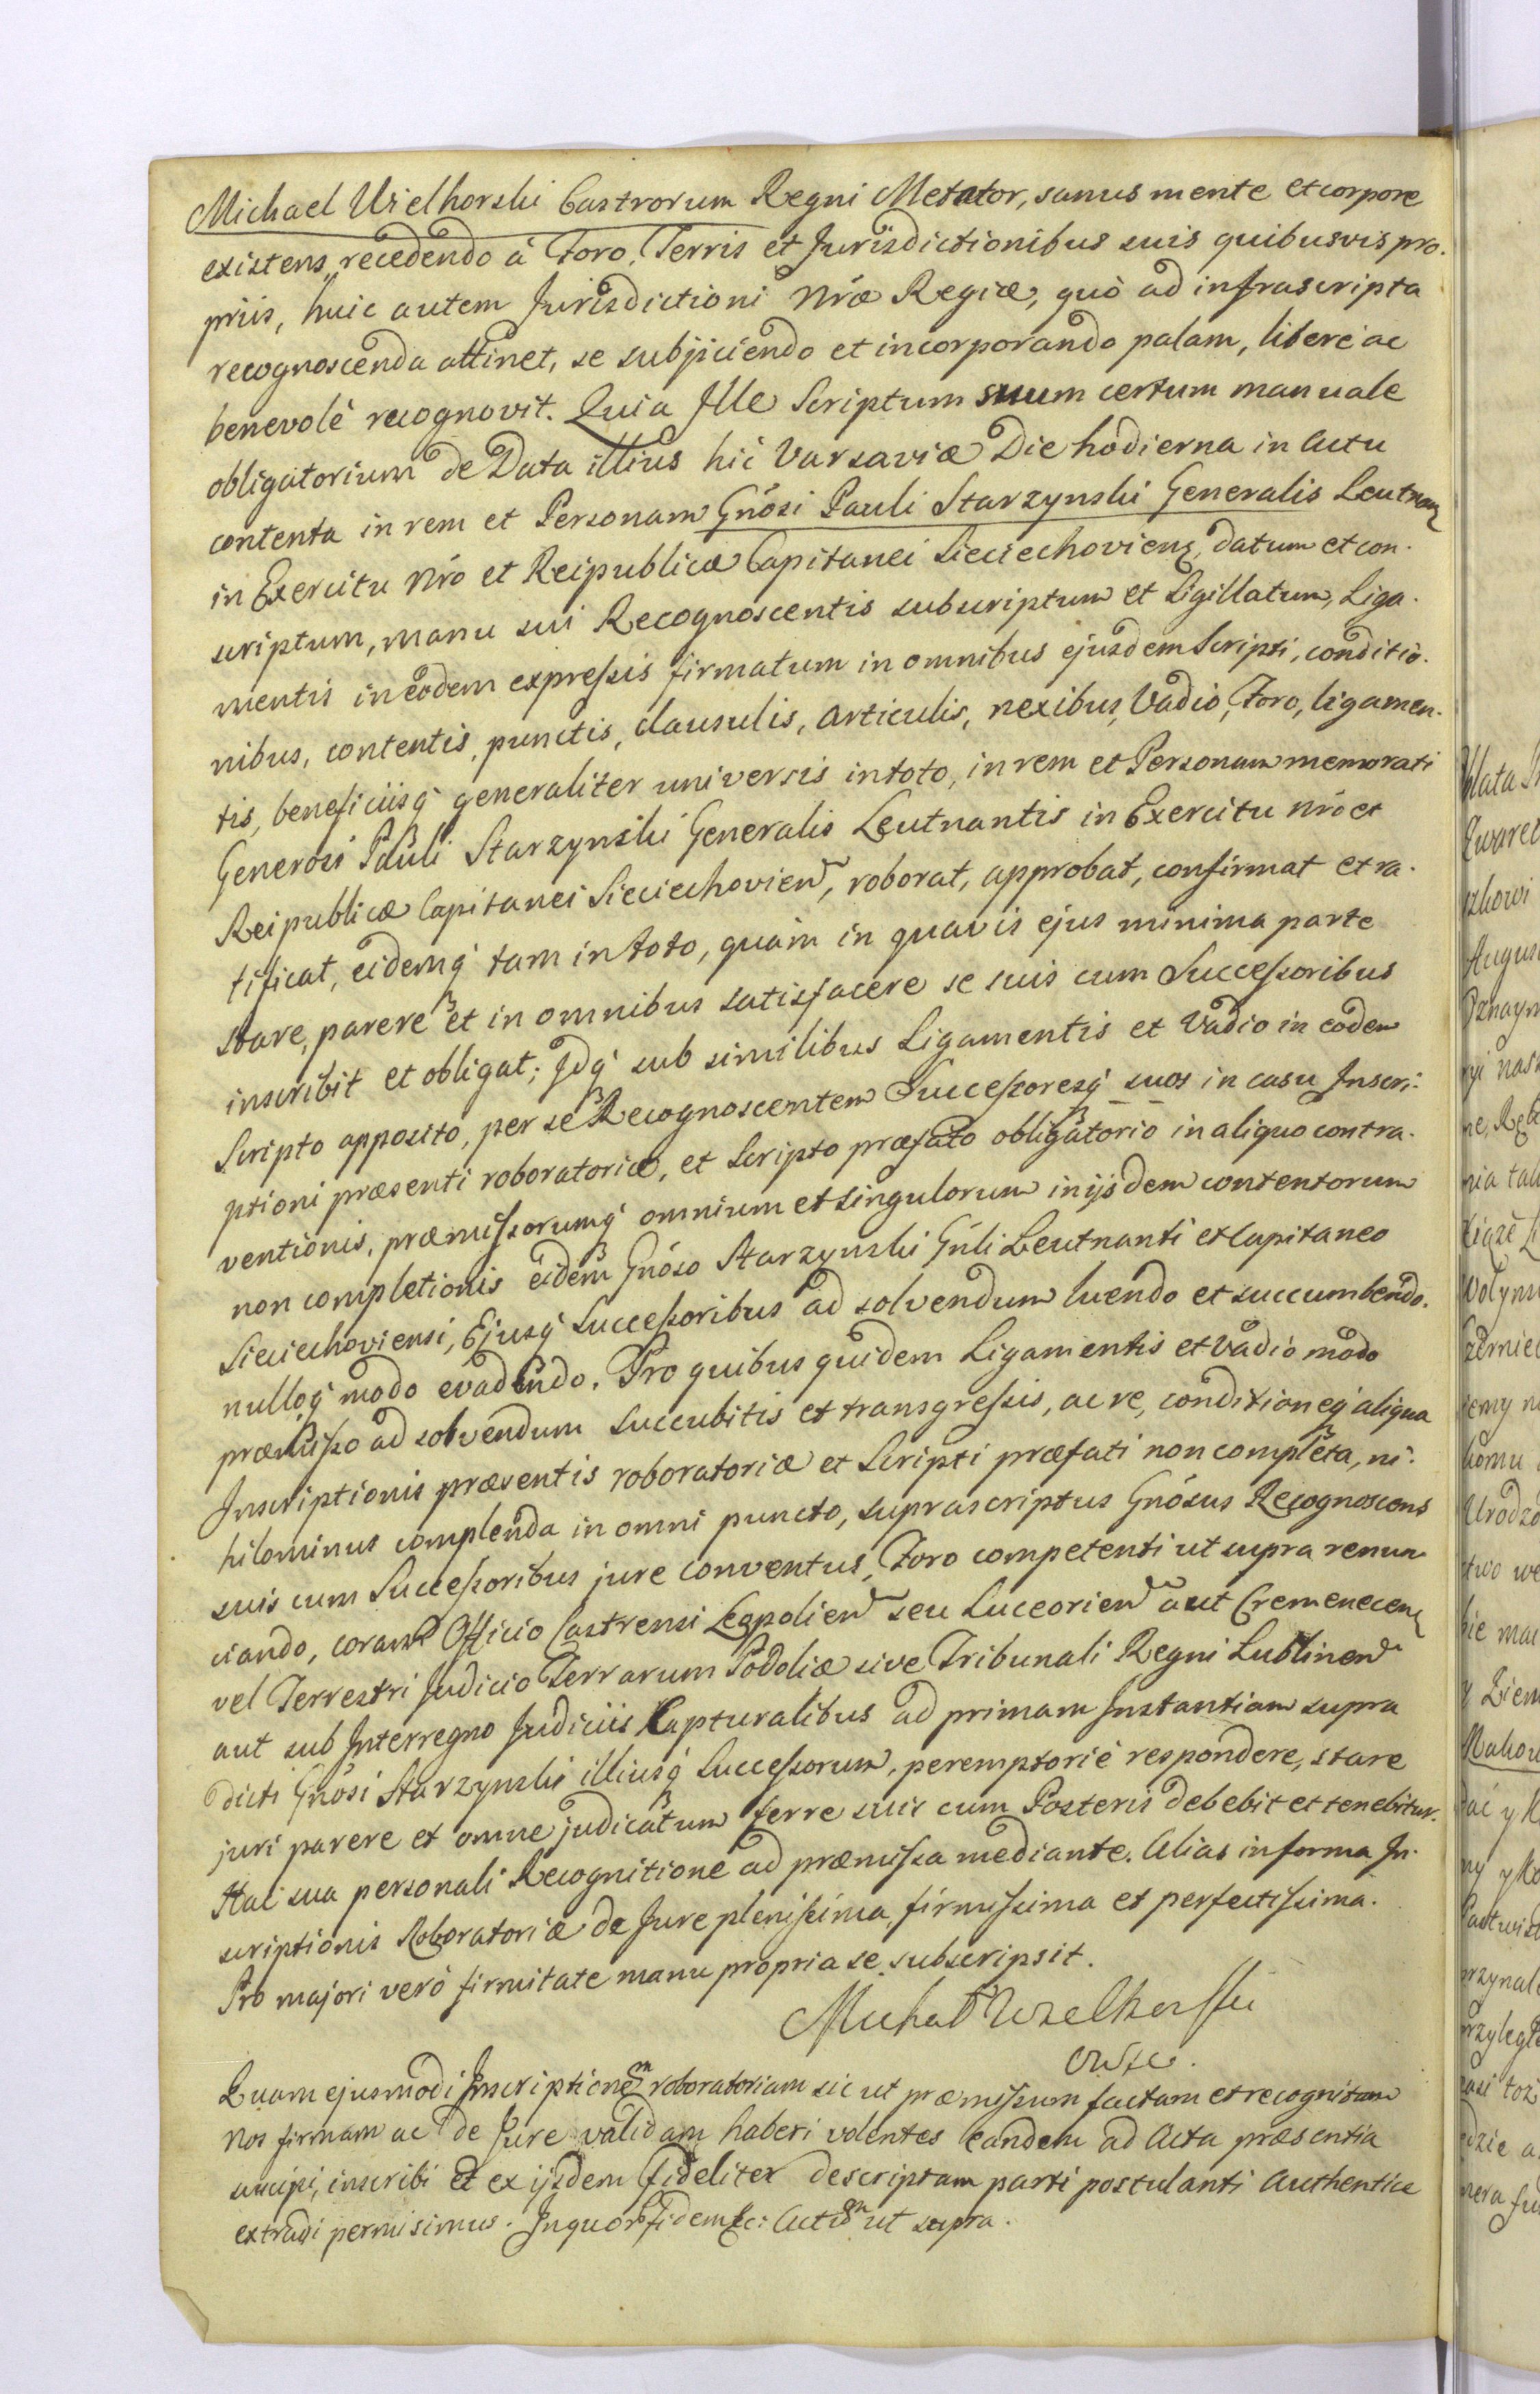 Michael Wielhorski Castrorum Regni Metator, sanus mente et corpore
existens, recedendo à Foro, Terris et Jurisdictionibus suis quibusvis pro.
priis, huic autem Jurisdictioni Nrae Regiae, quò ad infrascripta
recognoscenda attinet, se subjiciendo et incorporando palam, liberè ac
benevolè recognovit. Quia Ille Scriptum suum certum manuale
obligatorium de Data illius hic Varsaviae Die hodierna in Actu
contenta in rem et Personam Gnósi Pauli Starzynski Generalis Leutnan
in Exercitu Nró et Reipublicae Capitanei Sieciechovien, datum et con.
scriptum, manu sui Recognoscentis subscriptum et Sigillatum, Liga.
mentis in eodem expressis firmatum in omnibus ejusdem Scripti, conditio.
nibus, contentis, punctis, clausulis, articulis, nexibus, Vadio, Foro, ligamen.
tis, beneficiisq generaliter universis in toto, in rem et Personam memorati
Generosi Pauli Starzynski Generalis Leutnantis in Exercitu Nró et
Reipublicae Capitanei Sieciechovien, roborat, approbat, confirmat et ra.
tificat, eidemq tam in toto, quàm in quavis ejus minima parte
stare, parere et in omnibus satisfacere se suis cum Successoribus
inscribit et obligat; Idq sub similibus Ligamentis et Vadio in eodem
Scripto apposito, per se Recognoscentem Successoresq suos in casu Inscri:
ptioni praesenti roboratoriae, et Scripto praefato obligatorio in aliquo contra.
ventionis, praemissorumq omnium et singulorum in ijsdem contentorum
non completionis eidem Gnóso Starzynski Gnli Leutnanti et Capitaneo
Sieciechoviensi, Ejusq Successoribus ad solvendum luendo et succumbendo.
nulloq modo evadendo. Pro quibus quidem Ligamentis et Vadio modo
praemisso ad solvendum succubitis et transgressis, ac re, conditioneq aliqua
Inscriptionis praesentis roboratoriae et Scripti praefati non completa, ni:
hilominus complenda in omni puncto, suprascriptus Gnósus Recognoscens
suis cum Successoribus jure conventus, Foro competenti ut supra renun
ciando, coram Officio Castrensi Leopolien seu Luceorien aut Cremenecen
vel Terrestri Judicio Terrarum Podoliae sive Tribunali Regni Lublinen
aut sub Interregno Judiciis Capturalibus ad primam Instantiam supra
dicti Gnósi Starzynski illiusq Successorum, peremptoriè respondere, stare
juri parere et omne judicatum ferre suis cum Posteris debebit et tenebitur.
Hac sua personali Recognitione ad praemissa mediante. Alias in forma In.
scriptionis Roboratoriae de Jure plenissima, firmissima et perfectissima.
Pro majori verò firmitate manu propria se subscripsit.
Michał Wielhorski
Quam ejusmodi Inscriptionem roboratoriam sic ut praemissum factam et recognitam
Nos firmam ac de Jure validam haberi volentes eandem ad Acta praesentia
suscipi, inscribi et ex ijsdem fideliter descriptam parti postulanti authentice
extradi permisimus. In quor fidem &c: Actum ut supra.